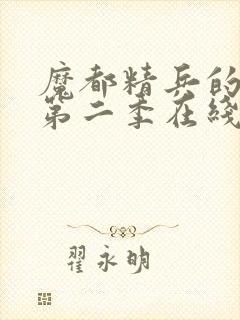 魔都精兵的
第二季在线
翟永明